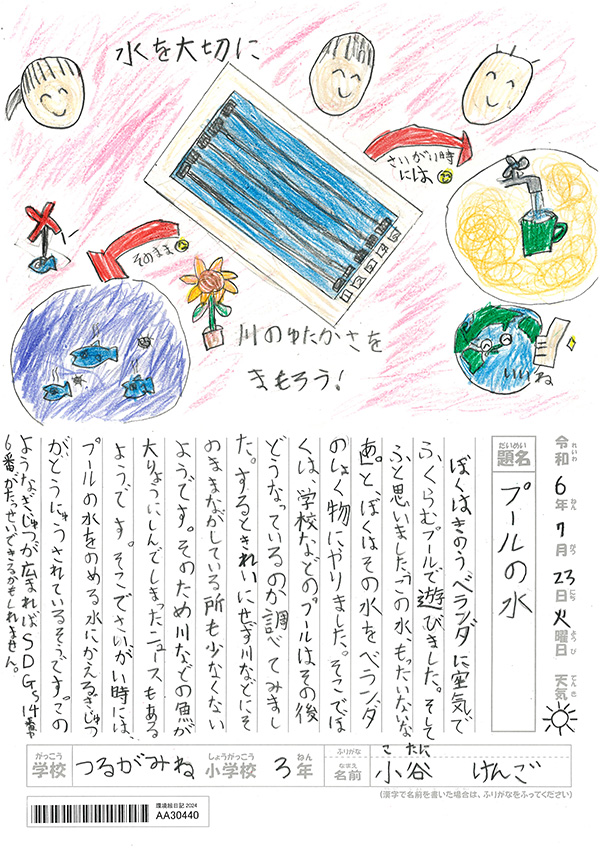 水を大切に
さいがい時
には
そのまま
川のゆたかさを
まもろう!
いいね
1 2 3 4 5 6
令和 6年 7月 23日 火曜日 天気
れいわ ねん がつ にち ようび てんき
だいめい
題名
プールの水
ぼくはきのうベランダに空気で
ふくらむプールで遊びました。そして
ふと思いました。「この水、もったいないな
あ。」と、ぼくはその水をベランダ
のしょく物にやりました。そこでぼ
くは、学校などのプールはその後
どうなっているのか調べてみまし
た。するときれいにせず川などにそ
のままながしている所も少なくない
ようです。そのため川などの魚が
大りょうにしんでしまったニュースもある
ようです。そこでさいがい時には、
プールの水をのめる水にかえるぎじゅつ
がどうにゅうされているそうです。この
ようなぎじゅつが広まればSDGs14番や
6番がたっせいできるかもしれません。
がっこう しょうがっこう ねん
学校 つるがみね 小学校 3年
ふりがな こたに
なまえ
名前 小谷 けんご
(漢字で名前を書いた場合は、ふりがなをふってください)
環境絵日記 2024
AA30440